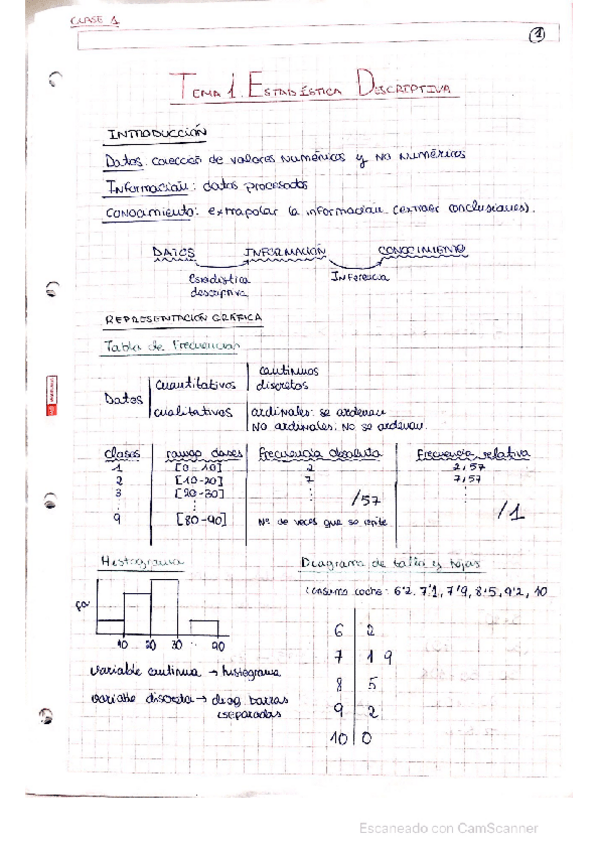 CLASE 1
1
TEMA 1. ESTADÍSTICA DESCRIPTIVA
INTRODUCCIÓN
Datos: colección de valores numéricos y no numéricos
Información: datos procesados
Conocimiento: extrapolar la información (extraer conclusiones).
DATOS INFORMACIÓN CONOCIMIENTO
Estadística descriptiva
Inferencia
REPRESENTACIÓN GRÁFICA
Tabla de Frecuencias
Datos
cuantitativos
continuos
discretos
cualitativos
ordinales: se ordenan
NO ordinales: No se ordenan.
clases rango clases Frecuencia absoluta Frecuencia relativa
1 [0-10] 2 2/57
2 [10-20] 7 7/57
3 [20-30] ⋮ ⋮
⋮ ⋮ /57 /1
9 [80-90] Nº de veces que se repite
Histograma
Diagrama de tallo y hojas
Consumo coche: 6'2, 7'1, 7'9, 8'5, 9'2, 10
10 20 30 90
6 | 2
7 | 1 9
8 | 5
9 | 2
10 | 0
variable continua → histograma
variable discreta → diag. barras
separadas
Escaneado con CamScanner